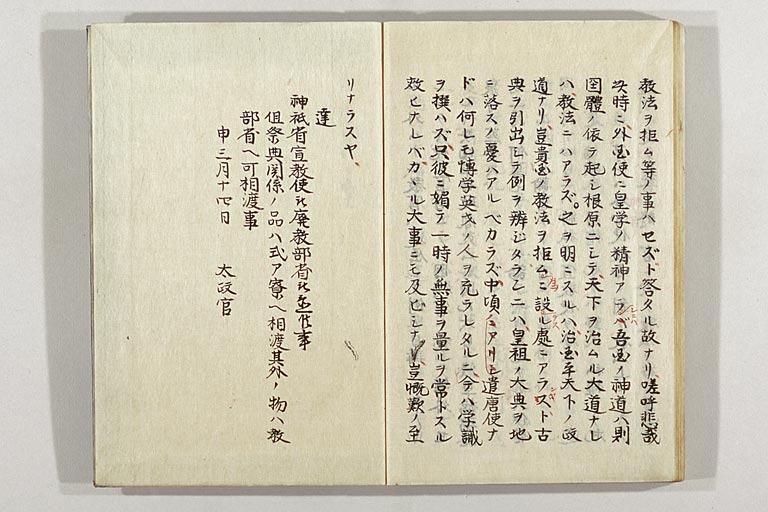 教法ヲ拒ム等ノ事ハセズト答タル故ナリ嗟呼悲哉
此時ニ外国使ニ皇学ノ精神アラバ吾国ノ神道ハ則
国體ノ依テ起シ根原ニシテ天下ヲ治ムル大道ナレ
ハ教法ニハアラズ之ヲ明ニスルハ治国平天下ノ政
道ナリ豈貴国ノ教法ヲ拒ムニ設ル處ニアラズト古
典ヲ引出シテ例ヲ辨ジタランニハ皇祖ノ大典ヲ地
ニ落スノ憂ハアルベカラズ中頃ニアリ遣唐使ナ
ドハ何レモ博学英才ノ人ヲ充ラレタルニ今ハ学識
ヲ撰ハズ只彼ニ媚テ一時ノ無事ヲ量ルヲ常トスル
故ヒナレバカヽル大事ニモ及ビシナリ豈慨歎ノ至
リナラスヤ
達
神祇省宣教使被廃教部省被置候事
但祭典関係ノ品ハ式部寮ヘ相渡其外ノ物ハ教
部省ヘ可相渡事
申三月十四日 太政官